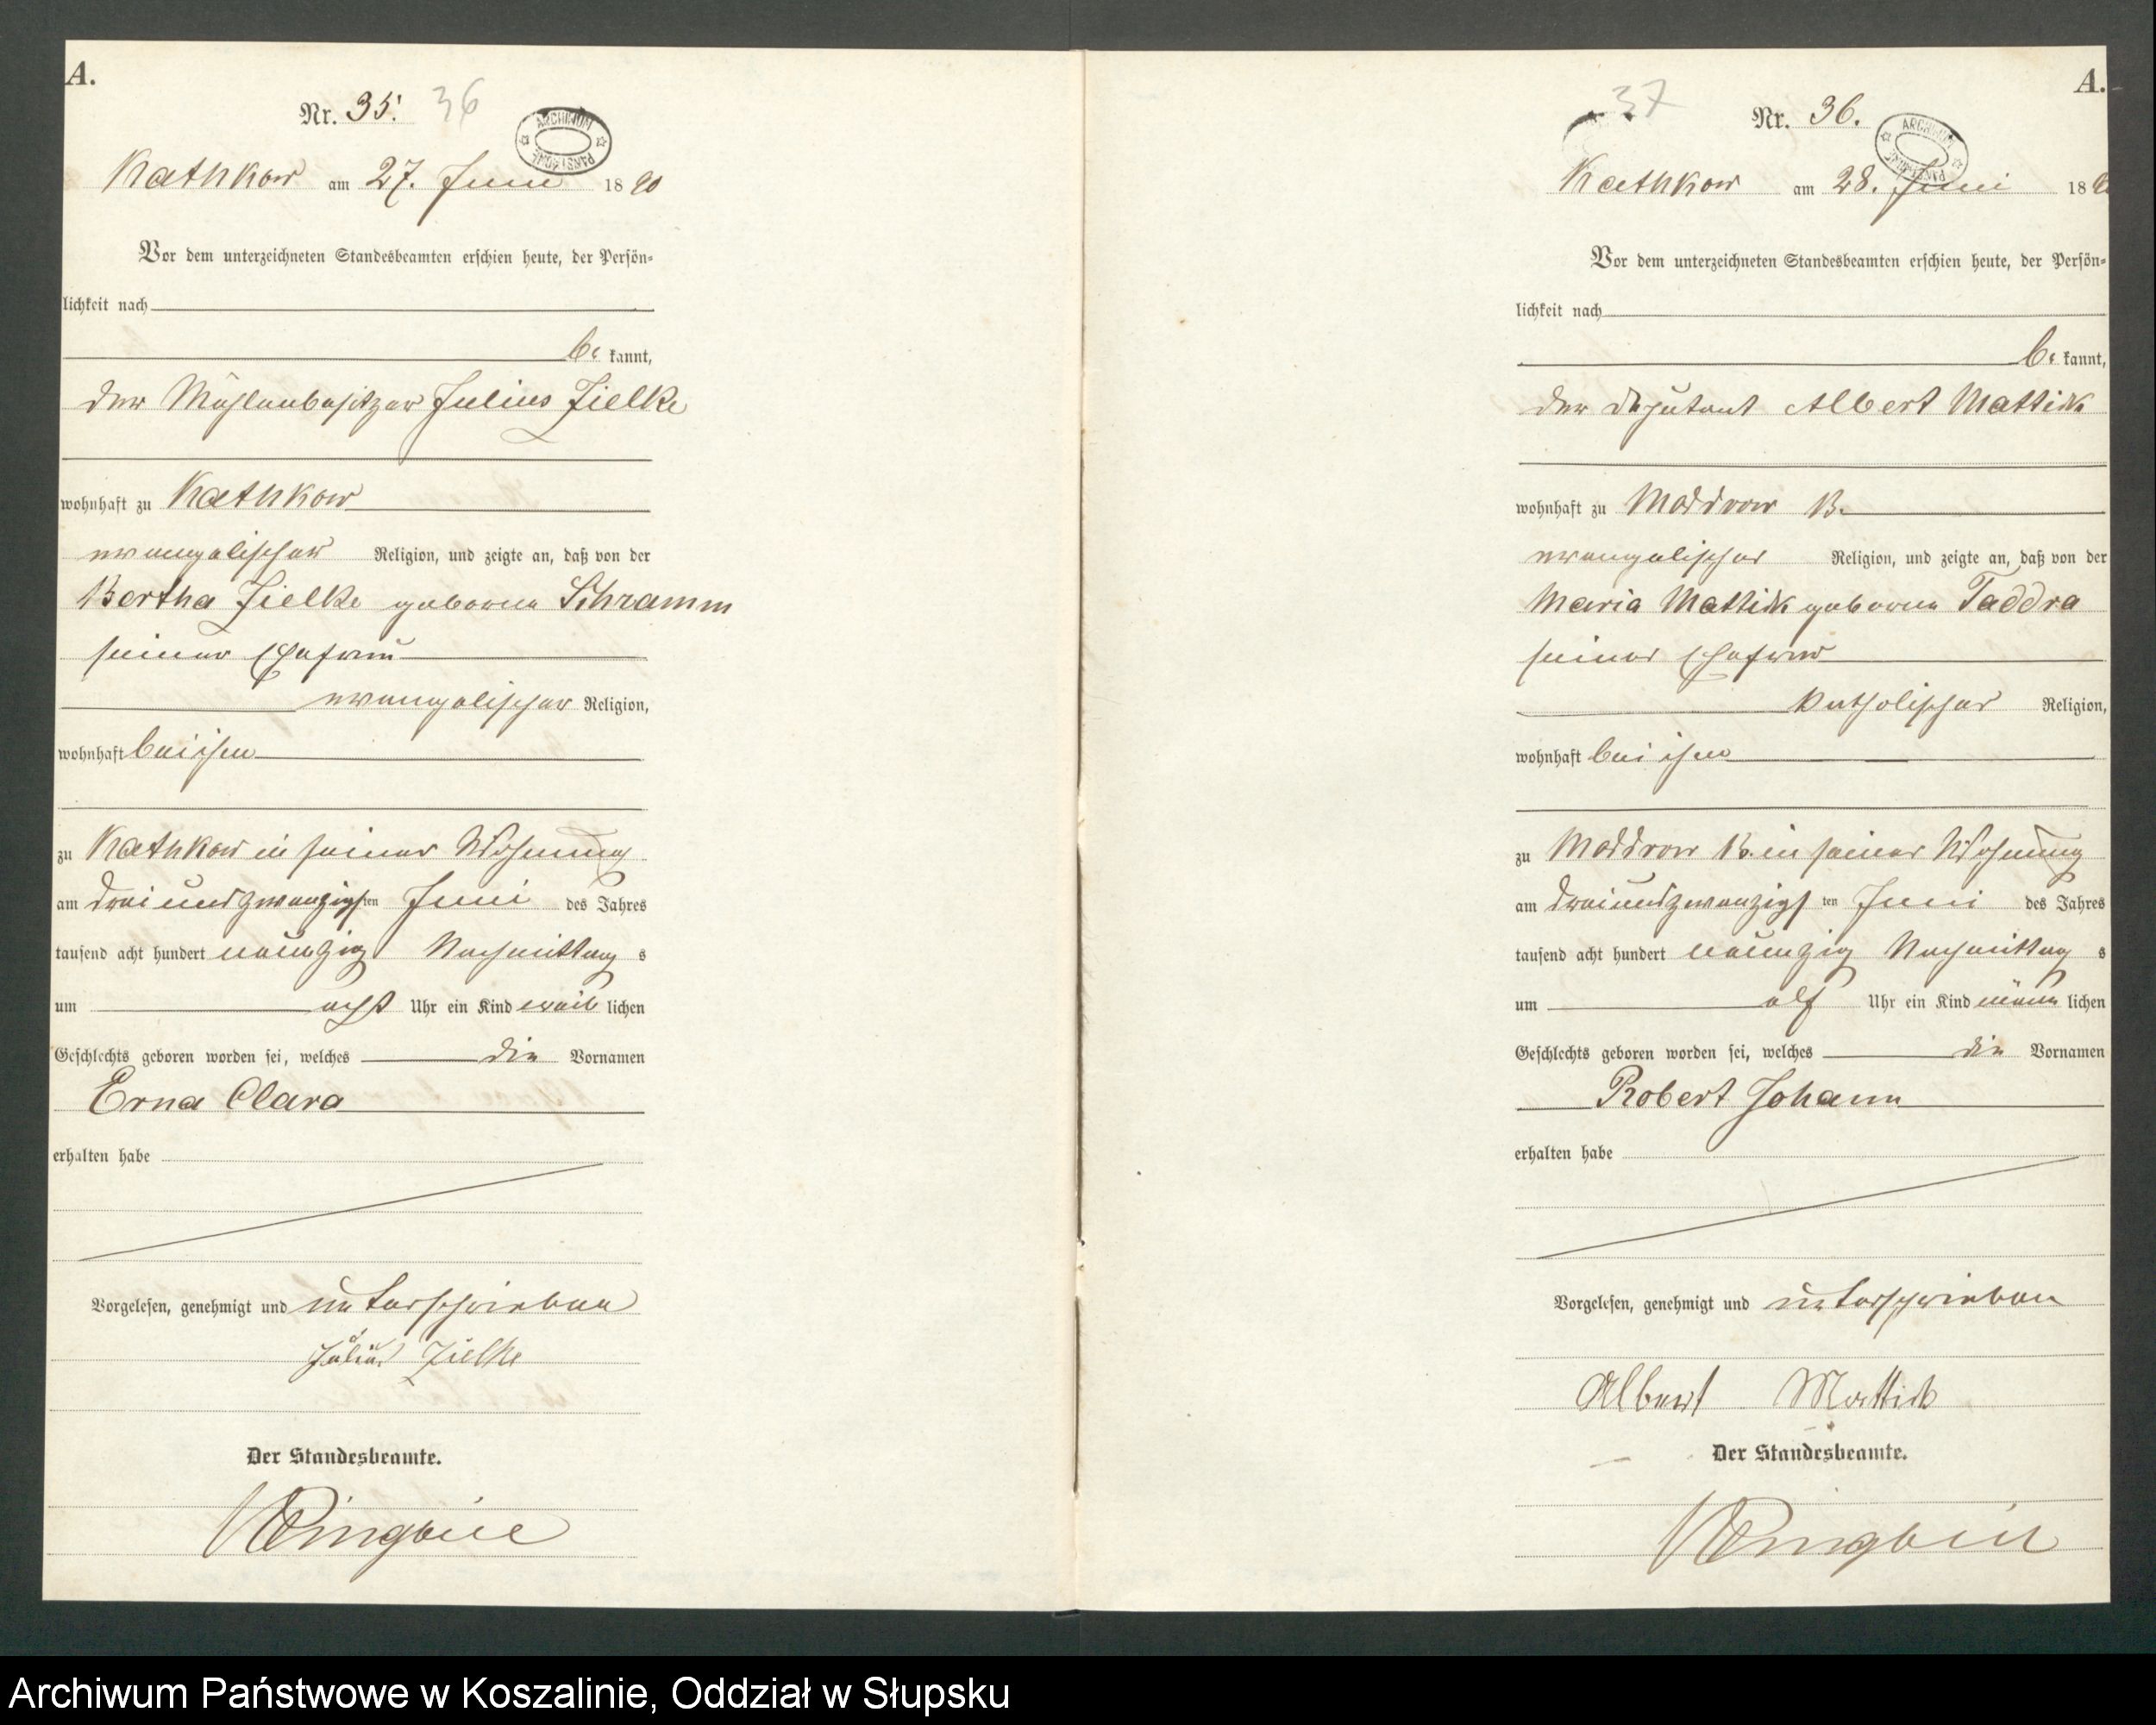 A.
Nr. 35. 36
ARCHIWUM PAŃSTWOWE
Kathkow am 27. Juni 1890
Vor dem unterzeichneten Standesbeamten erschien heute, der Persön-
lichkeit nach
be kannt,
der Mühlenbesitzer Julius Zielke
wohnhaft zu Kathkow
evangelischer Religion, und zeigte an, daß von der
Bertha Zielke geborene Schramm
seiner Ehefrau
evangelischer Religion,
wohnhaft bei ihm
zu Kathkow in seiner Wohnung
am dreiundzwanzigsten Juni des Jahres
tausend acht hundert neunzig Nachmittags
um acht Uhr ein Kind weiblichen
Geschlechts geboren worden sei, welches die Vornamen
Erna Clara
erhalten habe
Vorgelesen, genehmigt und unterschrieben
Julius Zielke
Der Standesbeamte.
A.
37 Nr. 36.
ARCHIWUM PAŃSTWOWE
Kathkow am 28. Juni 18
Vor dem unterzeichneten Standesbeamten erschien heute, der Persön-
lichkeit nach
be kannt,
der Deputant Albert Mattik
wohnhaft zu Moddrow B.
evangelischer Religion, und zeigte an, daß von der
Maria Mattik geborene Taddra
seiner Ehefrau
katholischer Religion,
wohnhaft bei ihm
zu Moddrow B. in seiner Wohnung
am dreiundzwanzigsten Juni des Jahres
tausend acht hundert neunzig Nachmittags
um elf Uhr ein Kind männlichen
Geschlechts geboren worden sei, welches die Vornamen
Robert Johann
erhalten habe
Vorgelesen, genehmigt und unterschrieben
Albert Mattik
Der Standesbeamte.
Archiwum Państwowe w Koszalinie, Oddział w Słupsku